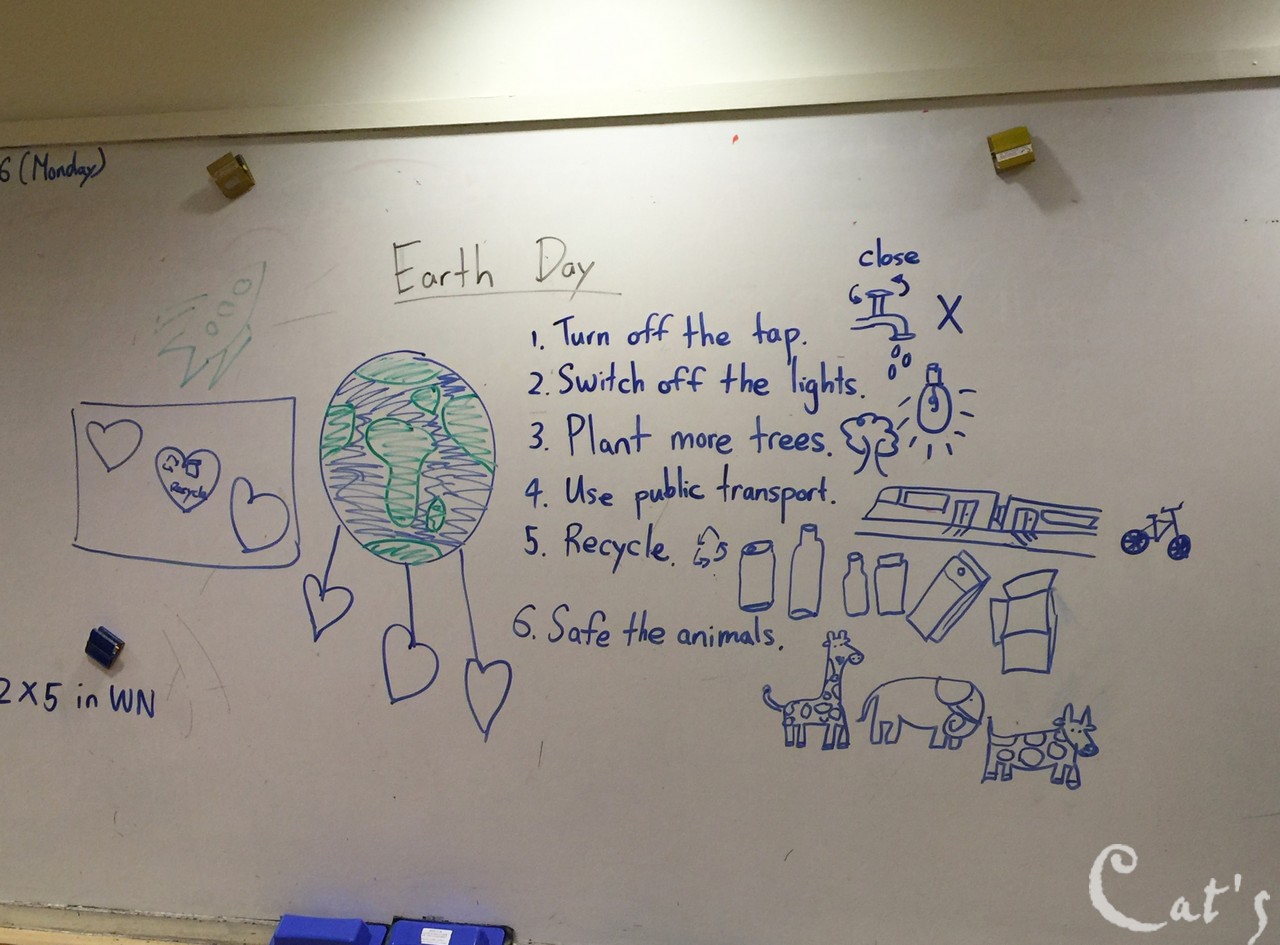 6 (Monday)
Earth Day
close
X
1. Turn off the tap.
2. Switch off the lights.
3. Plant more trees.
4. Use public transport.
5. Recycle.
6. Safe the animals.
Recycle
2x5 in WN
Cat's